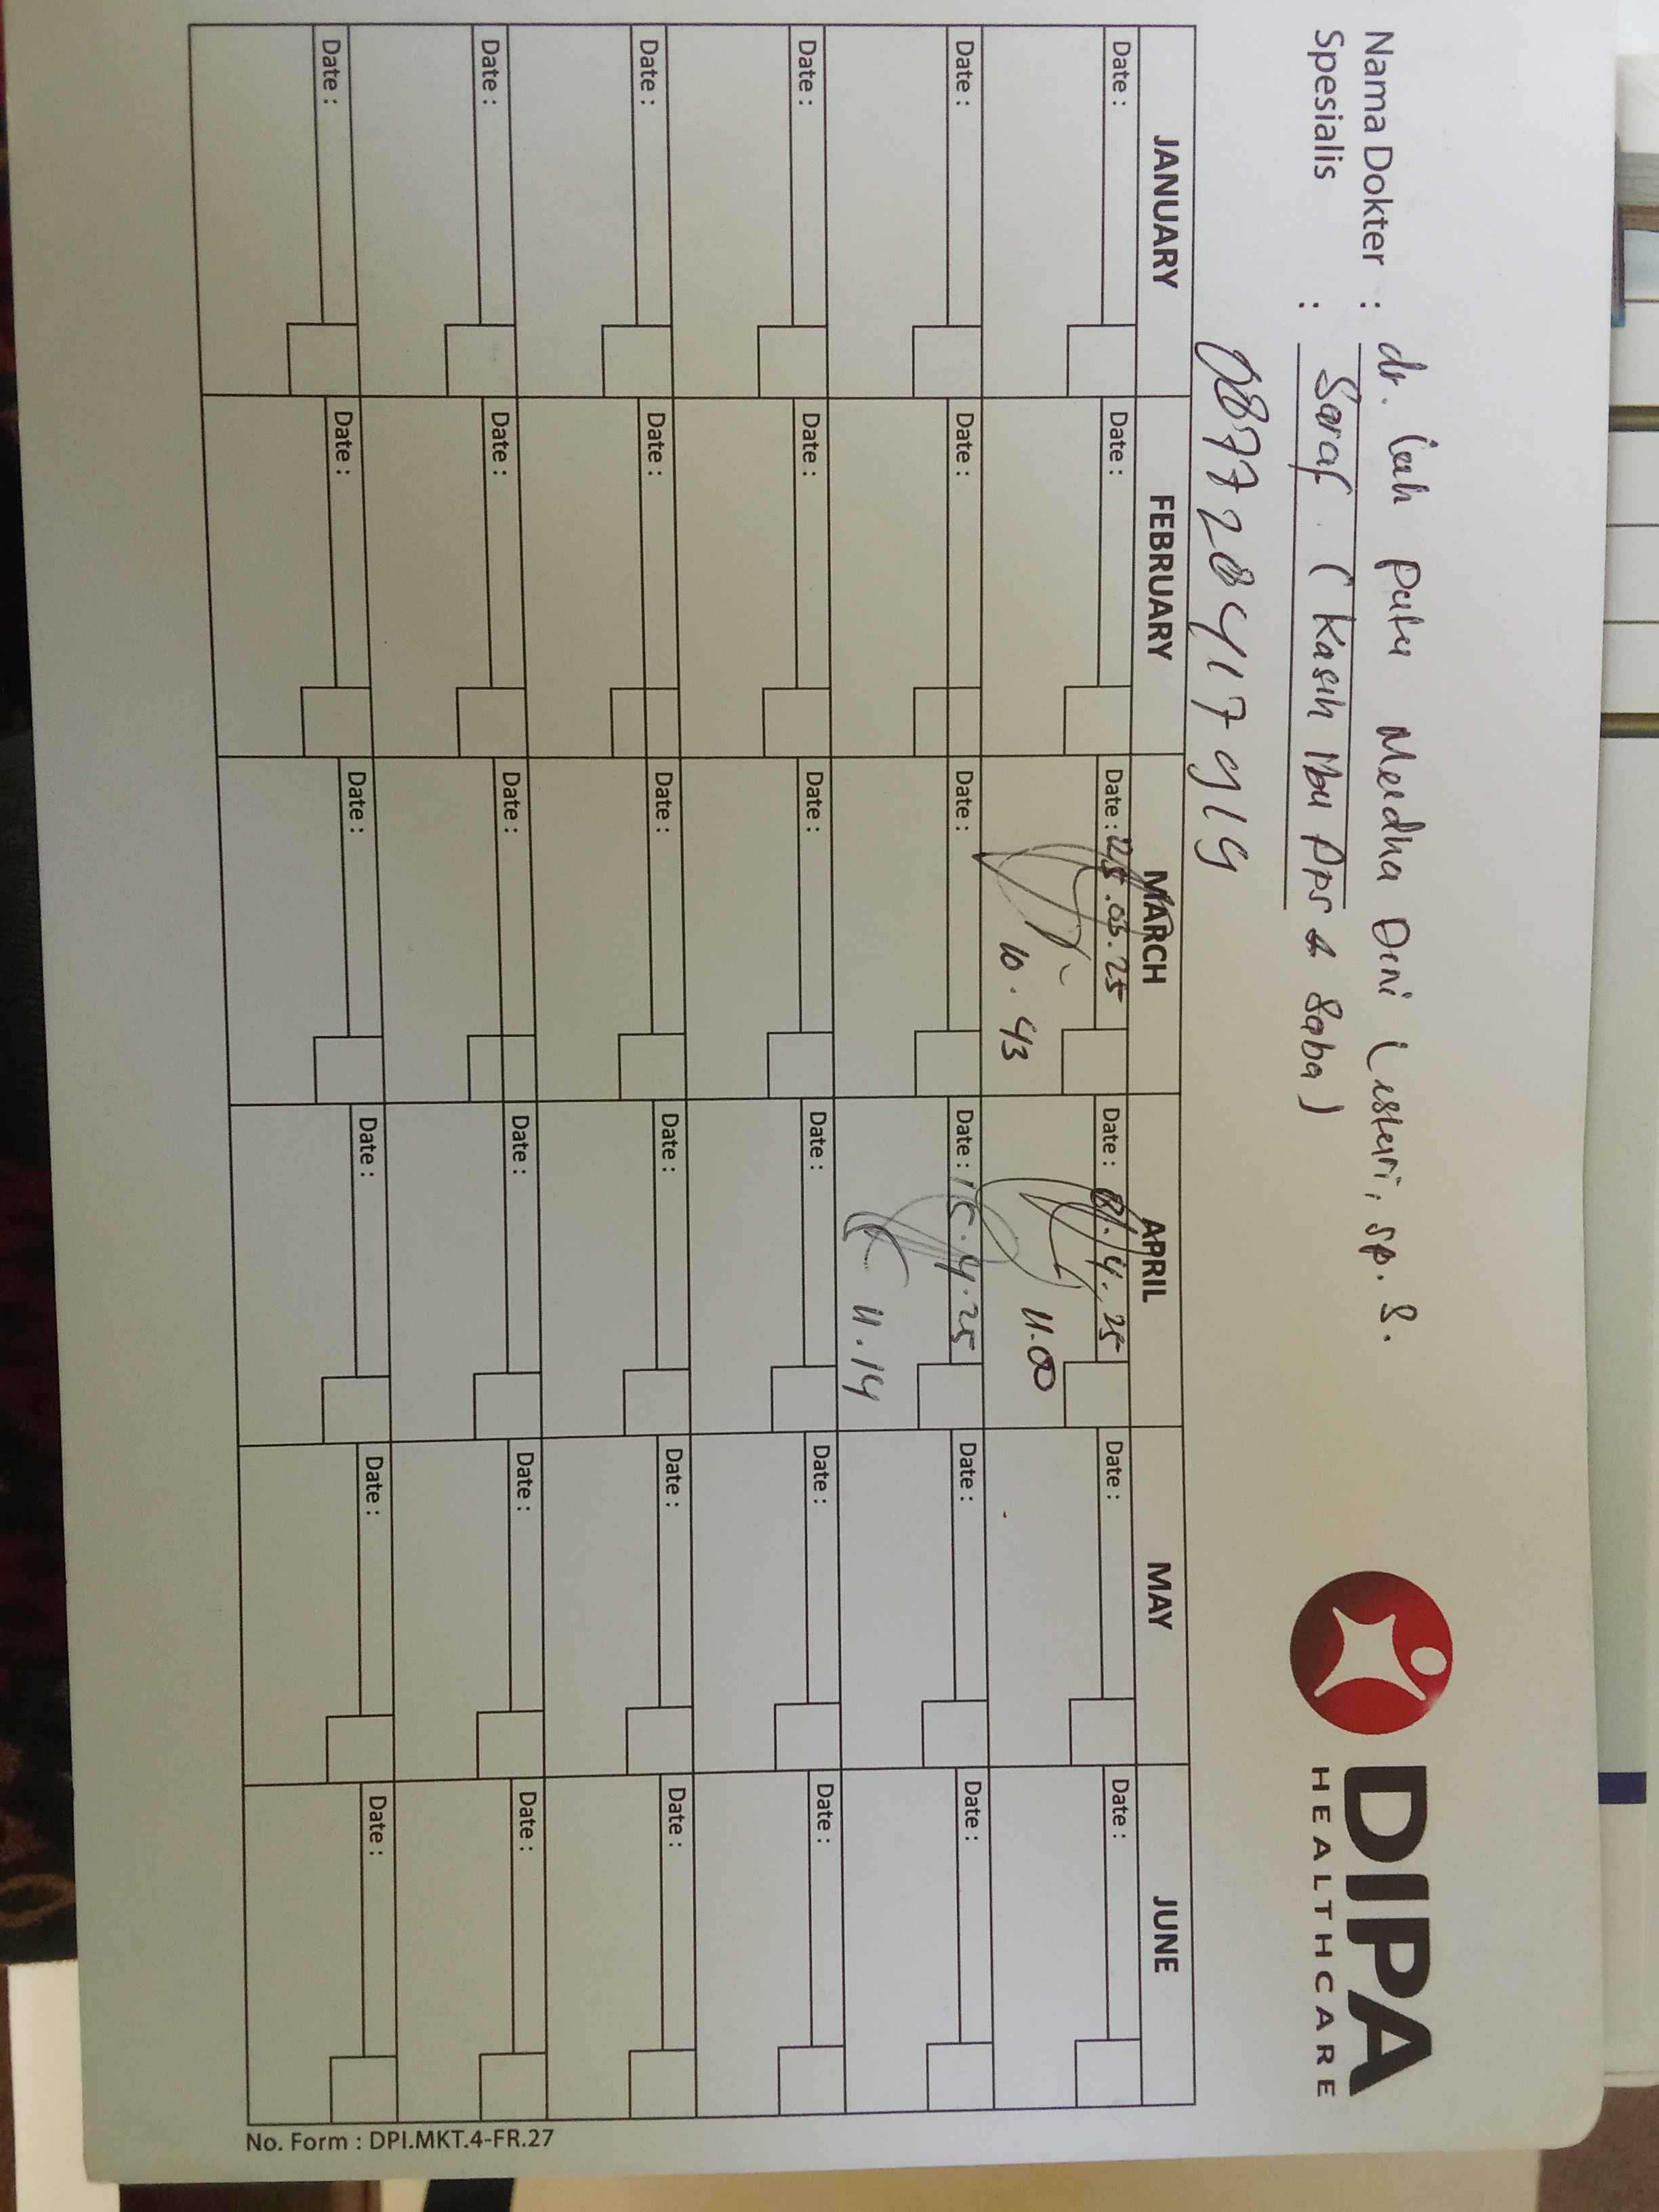 Nama Dokter : dr. Putu Meidha Dini Lestari, Sp. S.
Spesialis : Saraf. (Kasih Ibu Dps & Saba)
DIPA
HEALTHCARE
JANUARY FEBRUARY MARCH APRIL MAY JUNE
Date : Date : Date : .03.25 Date : .4.25 Date : Date :
10.43 11.00
Date : Date : Date : Date : 15.4.25 Date : Date :
11.14
Date : Date : Date : Date : Date : Date :
Date : Date : Date : Date : Date : Date :
Date : Date : Date : Date : Date : Date :
Date : Date : Date : Date : Date : Date :
No. Form : DPI.MKT.4-FR.27